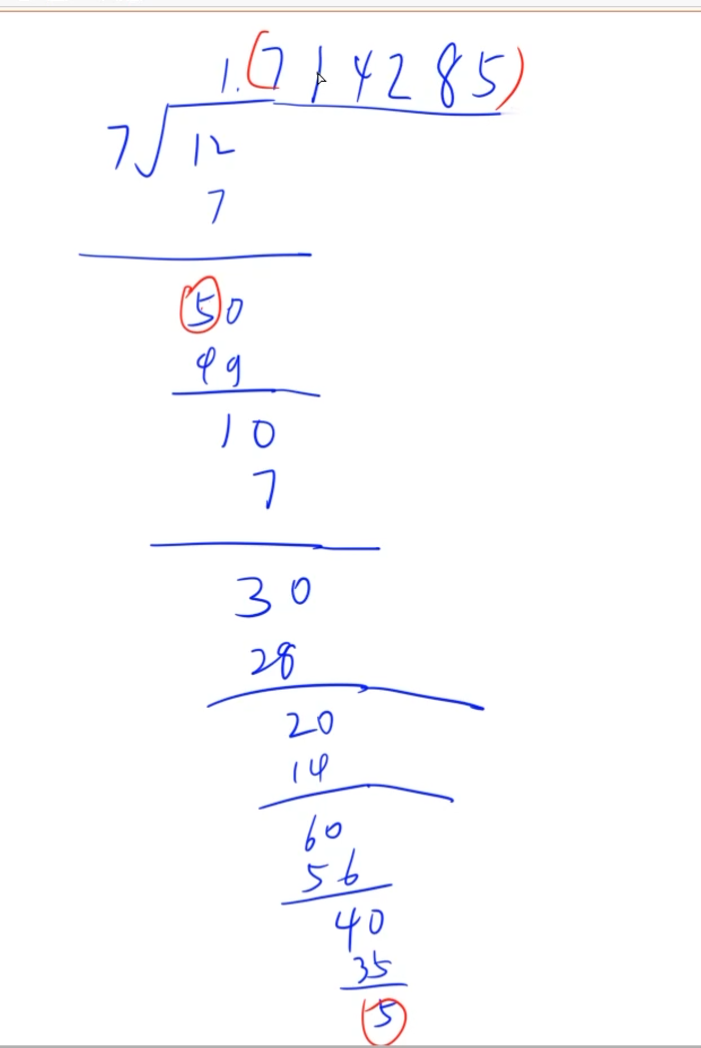 1.(714285)
7√12
7
50
49
10
7
30
28
20
14
60
56
40
35
5